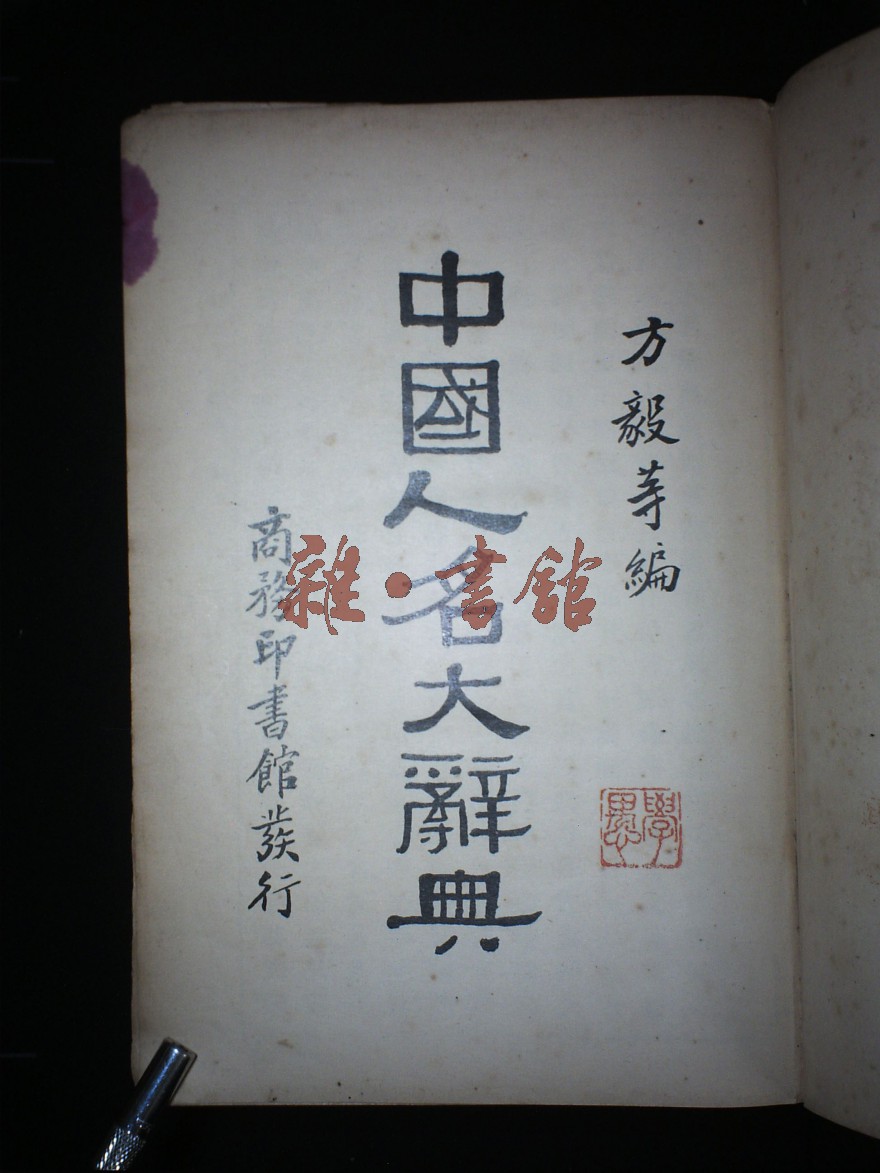 方毅等編
中國人名大辭典
商務印書館發行
雜·書館
學愚